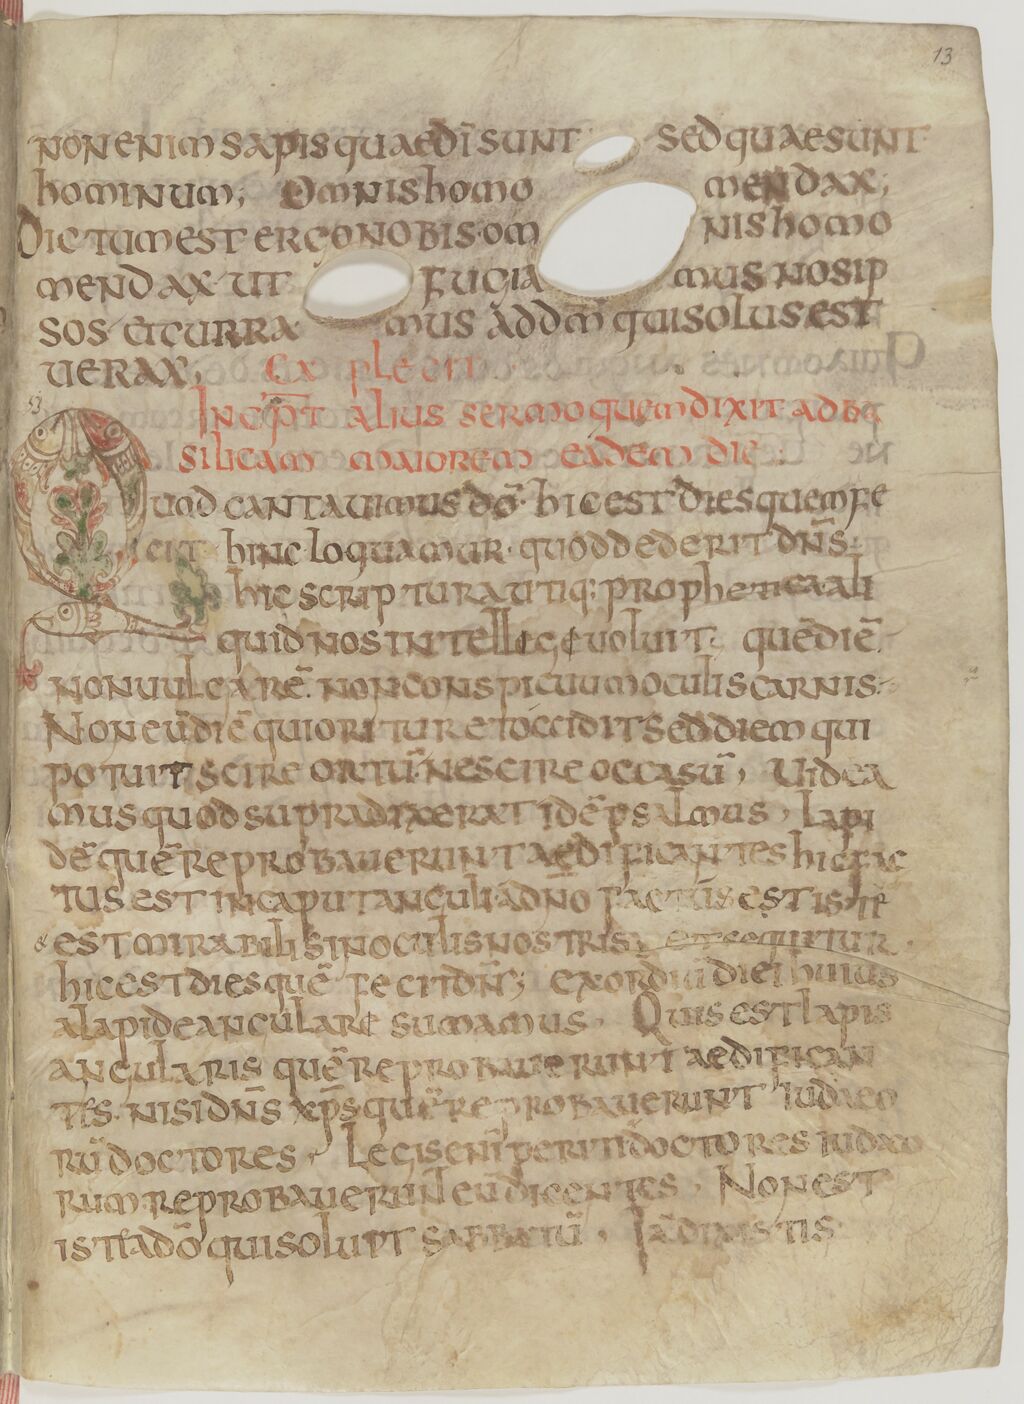 13
non enim sapis quae dī sunt sed quae sunt
hominum; Omnis homo mendax;
Dictum est ergo nobis· omnis homo
mendax· ut fugiamus nos ip
sos· et curramus ad dm̄ qui solus est
uerax; Explecit·
53
Incip̄t alius sermo quem dixit ad ba
silicam maiorem eadem die
Quod cantauimus dō· hic est dies quem fe
cit hinc loquamur· quod dederit dn̄s
hic scriptura utiq; prophetica· ali
quid nos intellege uoluit; quēdiē
non uulgarē· non conspicuum oculis carnis·
Non eū diē qui oritur et occidit sed diem qui
potuit scire ortū· nescire occasū, Uidea
mus quod supra dixerat idē psalmus, Lapi
dē quē reprobauerunt aedificantes hic fac
tus est in caput anguli· a dn̄o factus est iste
& est mirabilis in oculis nostris; et sequitur
hic est dies quē fecit dn̄s; exordiū diei huius
a lapide angulare sumamus, Quis est lapis
angularis quē reprobauerunt aedifican
tes· nisi dn̄s xp̄s quē reprobauerunt iudaeo
rū doctores, Legis enī periti doctores iudaeo
rum reprobauerunt eū dicentes, Non est
iste a dō qui soluit sabbatū, Iā dixistis